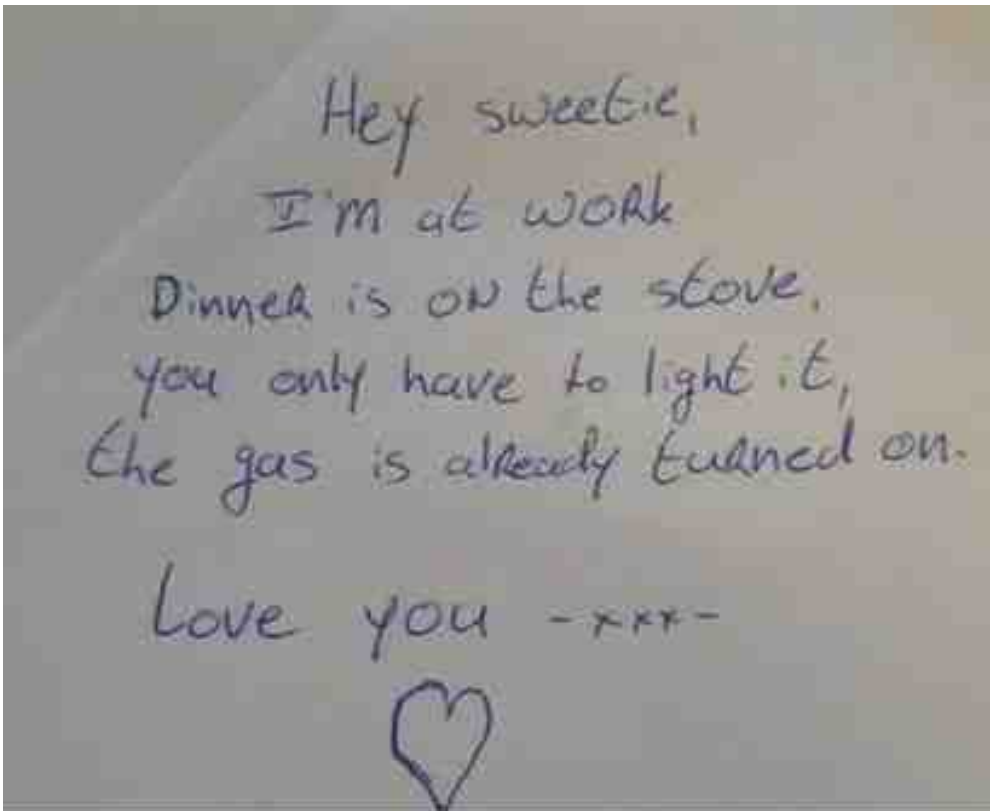 Hey sweetie,
I'm at work
Dinner is on the stove,
you only have to light it,
the gas is already turned on.
Love you -xxx-